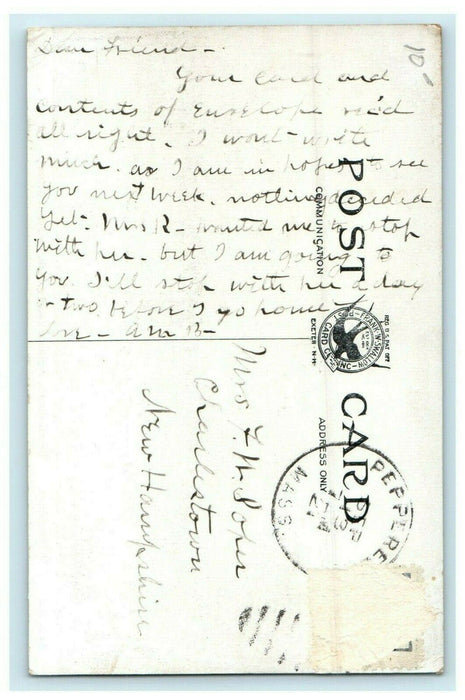 Dear Friend -
10-
Your card and
contents of Envelope rec'd
all right. I wont write
much. as I am in hopes to see
you next week. nothing decided
yet - Mrs R - wanted me to stop
with her. but I am going to
you I'll stop with her a day
or two before I go home
Love -
POST CARD
COMMUNICATION
ADDRESS ONLY
FRANK W. SWALLOW
POST CARD CO. INC.
EXETER - N-H
REG. U S PAT OFF
Mrs
Charlestown
New Hampshire
PEPPERE
MASS.